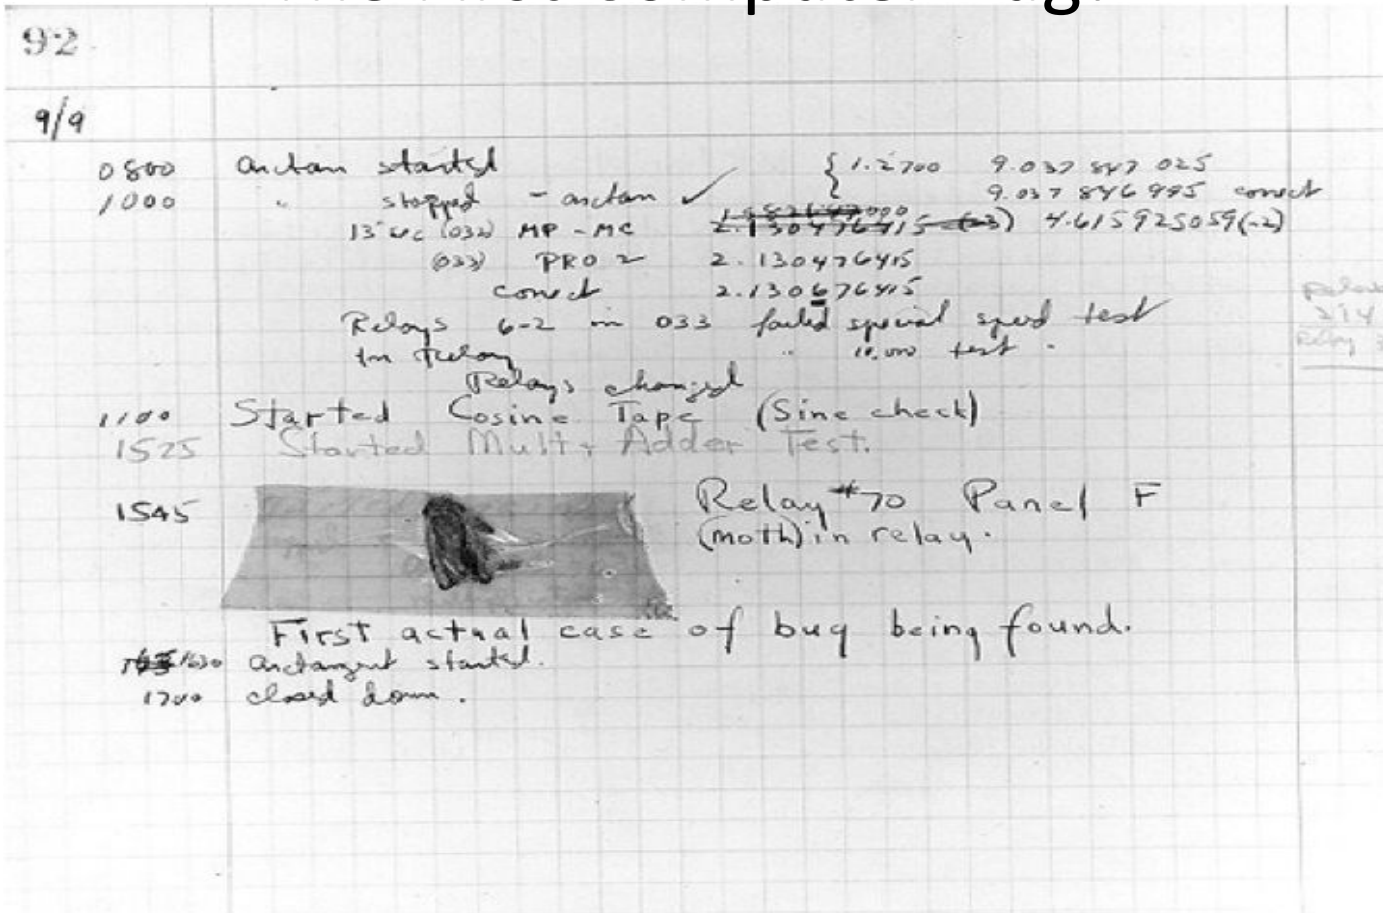 92
9/9
0800 arctan started { 1.2700 9.037 847 025
1000 " stopped - arctan ✓ 9.037 846 995 correct
13"uc (032) MP - MC 2.130476415 (-3) 4.615925059(-2)
(033) PRO 2 2.130476415
correct 2.130676415
Relays 6-2 in 033 failed special speed test
in relay " 10.000 test .
Relays changed
1100 Started Cosine Tape (Sine check)
1525 Started Mult + Adder Test.
1545 Relay #70 Panel F
(moth) in relay.
First actual case of bug being found.
1630 arctangent started.
1700 closed down .